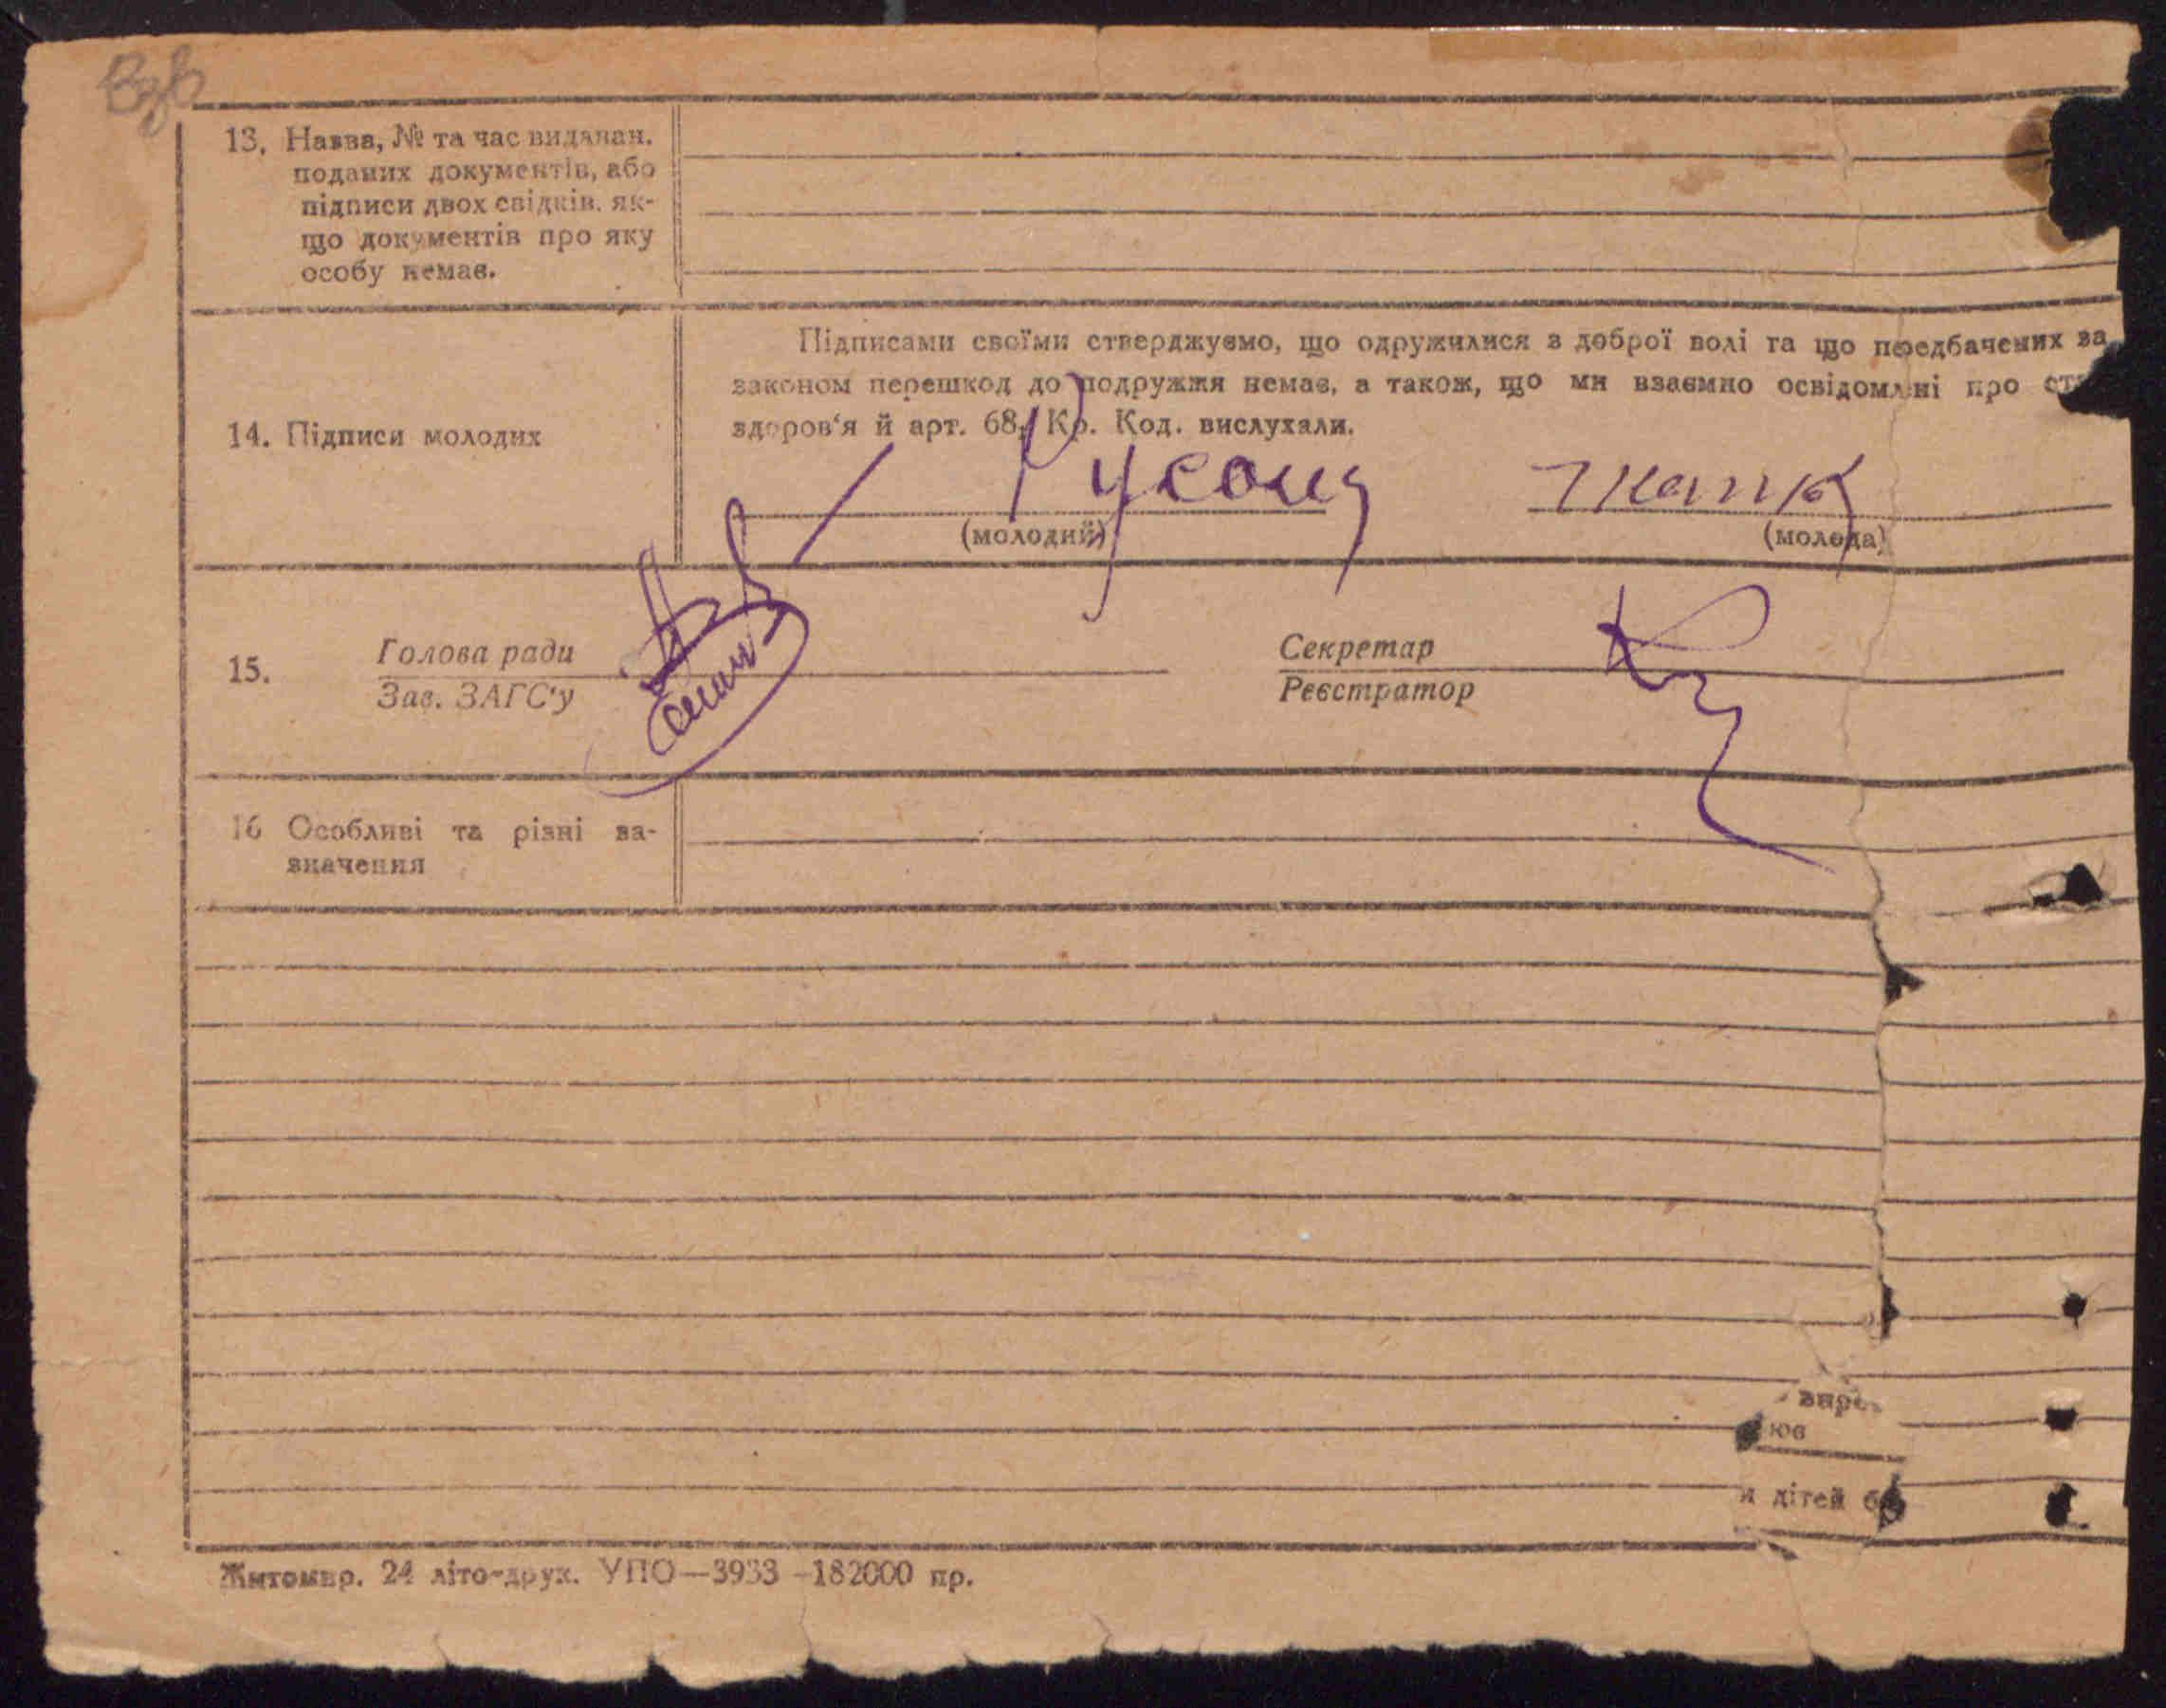 13. Назва, № та час виданан.
поданих документів, або
підписи двох свідків, як-
що документів про яку
особу немає.
Підписами своїми стверджуємо, що одружилися з доброї волі та що передбачених за
законом перешкод до подружжя немає, а також, що ми взаємно освідомлені про
здоров'я й арт. 68, Кр. Код. вислухали.
14. Підписи молодих
(молодий) (молода)
15. Голова ради Секретар
Зав. ЗАГС'у Реєстратор
16 Особливі та різні за-
значення
юв
дітей
Житомир. 24 літо-друк. УПО—3933—182000 пр.